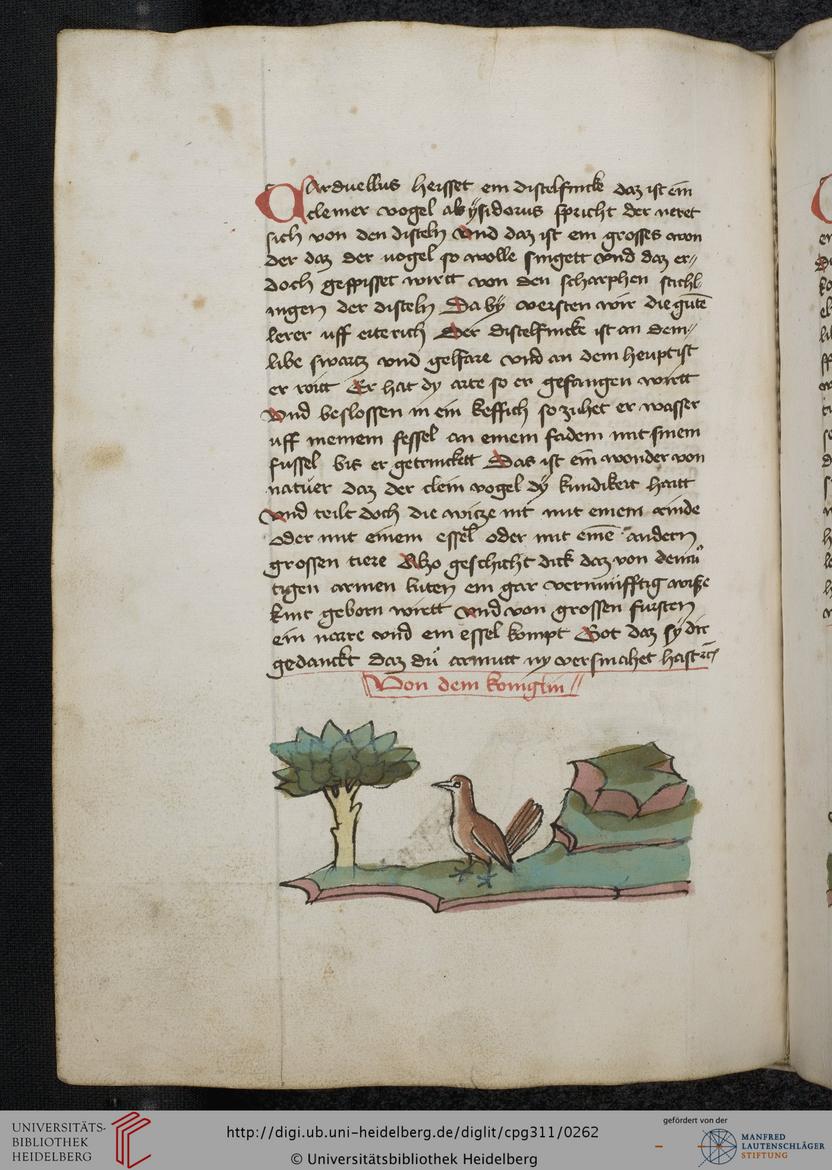 Carduellus heisset ein distelfincke daz ist ein
cleiner vogel als ÿsidorus spricht der neret
sich von den disteln Vnd daz ist ein grosses won
der daz der uogel so wolle singett vnd daz er//
doch gespisset wirtt von den scharphen stichl
ingen der disteln Da bÿ versten wir die gutē
lerer uff erterich Der distelfincke ist an dem//
libe swartz vnd gelfare vnd an dem heupt ist
er roitt Er hat dy arte so er gefangen wirtt
Vnd beslossen in ein keffich so zuhet er wasser
uff in einem fessel an einem fadem mit sinem
fussel bis er getrinckett Das ist ein wonder von
natuer daz der clein vogel dÿ kundikeit haitt
Vnd teilt doch die witze nit mit einem rinde
oder mit einem essel oder mit einē andern
grossen tiere Also geschicht dick daz von demu
tigen armen luten ein gar vernunfftig wise
kint geborn wirtt Vnd von grossen fursten
ein narre vnd ein essel kompt Got daz sÿ dir
gedanckt daz du armutt ny versmahet hast
Von dem koniglin //
UNIVERSITÄTS-
BIBLIOTHEK
HEIDELBERG
http://digi.ub.uni-heidelberg.de/diglit/cpg311/0262
© Universitätsbibliothek Heidelberg
gefördert von der
MANFRED
LAUTENSCHLÄGER
STIFTUNG